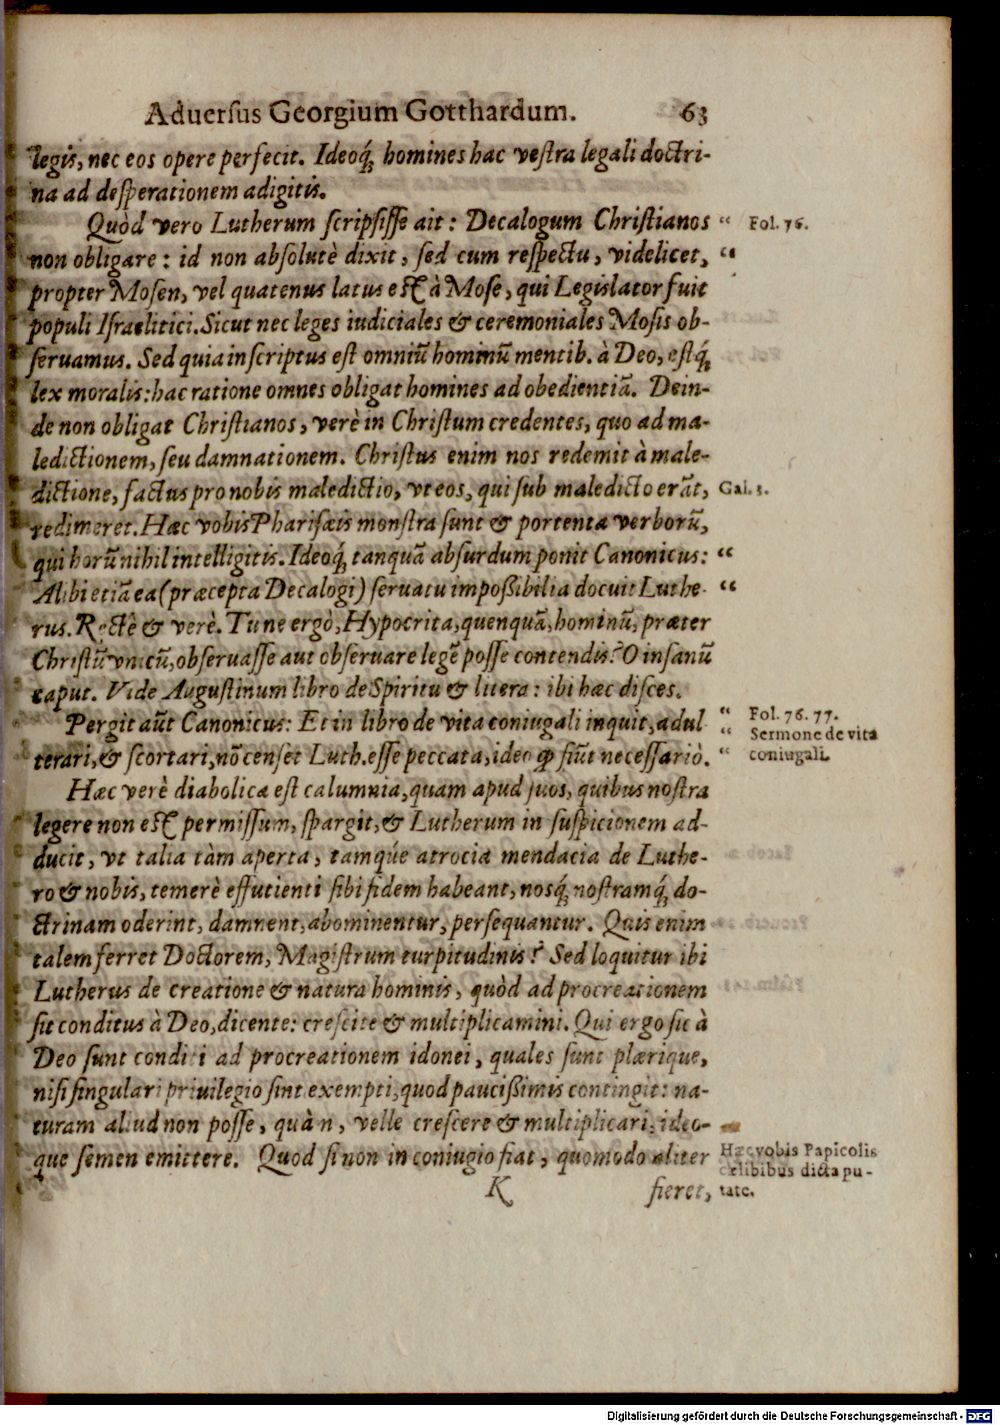 Aduersus Georgium Gotthardum. 63
legis, nec eos opere perfecit. Ideoq́; homines hac vestra legali doctri-
na ad desperationem adigitis.
Quòd vero Lutherum scripsisse ait: Decalogum Christianos “ Fol. 76.
non obligare: id non absolutè dixit, sed cum respectu, videlicet, “
propter Mosen, vel quatenus latus est à Mose, qui Legislator fuit
populi Israelitici. Sicut nec leges iudiciales & ceremoniales Mosis ob-
seruamus. Sed quia inscriptus est omniũ hominũ mentib. à Deo, estq́;
lex moralis: hac ratione omnes obligat homines ad obedientiã. Dein-
de non obligat Christianos, verè in Christum credentes, quo ad ma-
ledictionem, seu damnationem. Christus enim nos redemit à male-
dictione, factus pro nobis maledictio, vt eos, qui sub maledicto erãt, Gal. 3.
redimeret. Hæc vobis Pharisæis monstra sunt & portenta verborũ,
qui horũ nihil intelligitis. Ideoq́; tanquã absurdum ponit Canonicus: “
Alibi etiã ea (præcepta Decalogi) seruatu impoßibilia docuit Luthe- “
rus. Rectè & verè. Tu ne ergò, Hypocrita, quenquã, hominũ, præter
Christũ vnicũ, obseruasse aut obseruare legẽ posse contendis? O insanũ
caput. Vide Augustinum libro de Spiritu & litera: ibi hæc disces.
Pergit aũt Canonicus: Et in libro de vita coniugali inquit, adul “ Fol. 76. 77.
terari, & scortari, nõ censet Luth. esse peccata, ideo ꝙ fiũt necessariò. “ Sermone de vita
“ coniugali.
Hæc verè diabolica est calumnia, quam apud suos, quibus nostra
legere non est permissum, spargit, & Lutherum in suspicionem ad-
ducit, vt talia tàm aperta, tamqúe atrocia mendacia de Luthe-
ro & nobis, temerè effutienti sibi fidem habeant, nosq́; nostramq́; do-
ctrinam oderint, damnent, abominentur, persequantur. Quis enim
talem ferret Doctorem, Magistrum turpitudinis? Sed loquitur ibi
Lutherus de creatione & natura hominis, quòd ad procreationem
sit conditus à Deo, dicente: crescite & multiplicamini. Qui ergo sic à
Deo sunt conditi ad procreationem idonei, quales sunt plærique,
nisi singulari priuilegio sint exempti, quod paucißimis contingit: na-
turam aliud non posse, quàm, velle crescere & multiplicari, ideo-
que semen emittere. Quod si non in coniugio fiat, quomodo aliter Hæc vobis Papicolis
cælibibus dicta pu-
K fieret, tate.
Digitalisierung gefördert durch die Deutsche Forschungsgemeinschaft - DFG